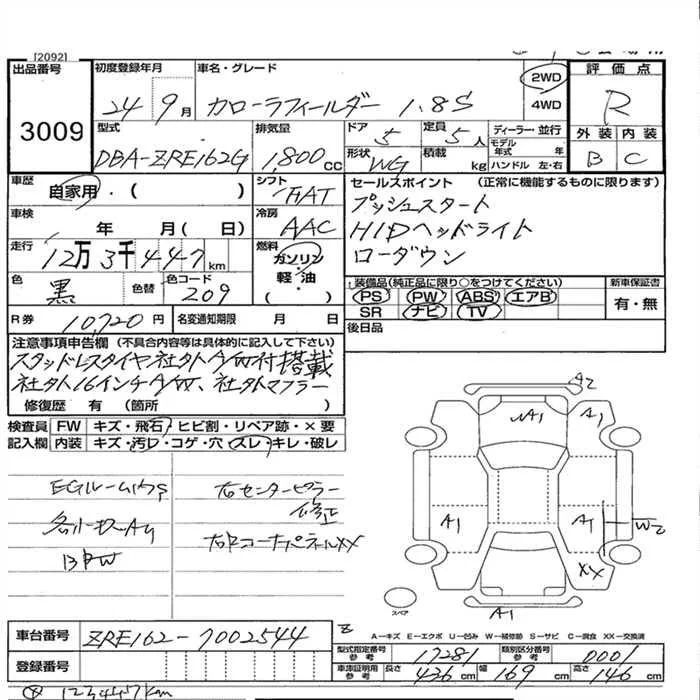 [2092]
出品番号 3009
初度登録年月 24年 9月
車名・グレード カローラフィールダー 1.8S
2WD
4WD
評価点 R
外装 B 内装 C
型式 DBA-ZRE162G
排気量 1,800 cc
ドア 5
定員 5人
ディーラー・並行
モデル年式 年
形状 WG
積載 kg
ハンドル 左・右
車歴 自家用・( )
シフト FAT
車検 年 月( 日)
冷房 AAC
走行 12万3千447km
燃料 ガソリン・軽油 ( )
色 黒 色替
色コード 209
R券 10,720円
名変通知期限 月 日
セールスポイント (正常に機能するものに限ります)
プッシュスタート
HIDヘッドライト
ローダウン
装備品(純正品に限り○をつけてください)
PS PW ABS エアB
SR ナビ TV
新車保証書 有・無
後日品
注意事項申告欄 (不具合内容等は具体的に記入して下さい)
スタッドレスタイヤ社外A/W付搭載
社外16インチA/W、社外マフラー
修復歴 有 (箇所 )
検査員記入欄
FW キズ・飛石・ヒビ割・リペア跡・×要
内装 キズ・汚レ・コゲ・穴・スレ・キレ・破レ
右センターピラー
修正
右RコーナーパネルXX
A2
A1
A1
A1
A1
W2
XX
スペア
A1
A-キズ E-エクボ U-凹み W-補修跡 S-サビ C-腐食 XX-交換済
車台番号 ZRE162-7002544
登録番号
型式指定番号 参考 17281
類別区分番号 参考 0001
車庫証明用 参考 長さ 436cm 幅 169cm 高さ 146cm
123447km